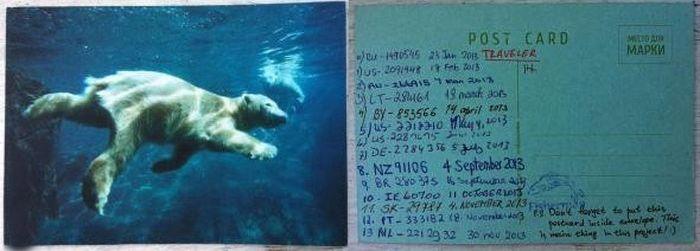 POST CARD
МЕСТО ДЛЯ
МАРКИ
0) RU-1490545 23 Jan 2013 TRAVELER
1) US-2091948 17 Feb 2013
2) AU- 7 mar 2013
3) LT- 18 march 2013
4) BY-853566 14 april 2013
5) US-2212210 May 4, 2013
6) US-2287675 2013
7) DE-2784356 5 july 2013
8. NZ 91106 4 September 2013
9. BR 280375 16 September 2013
10. IE 60700 11 OCTOBER 2013
11. SK-29787 4. NOVEMBER 2013
12. PT-333182 18. November 2013
13 NL-2212932 30 nov 2013
P.S. Don't forget to put this
postcard inside envelope. This
is main thing in this project! :)